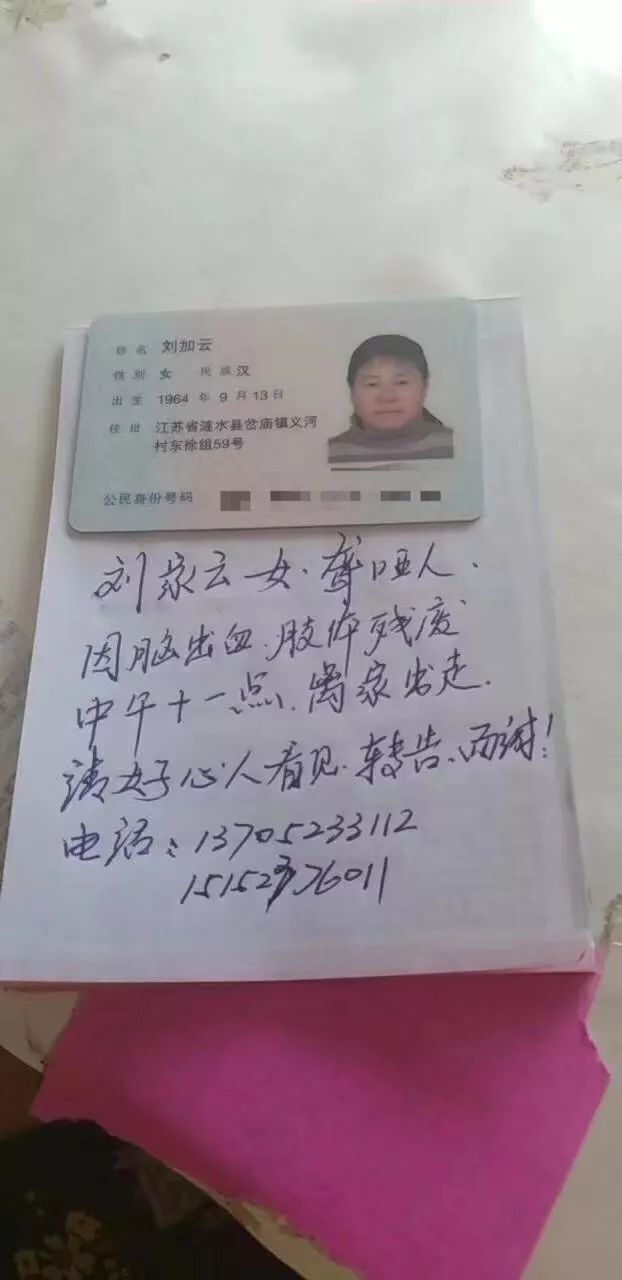 姓名 刘加云
性别 女 民族 汉
出生 1964 年 9 月 13 日
住址 江苏省涟水县岔庙镇义河
村东徐组59号
公民身份号码
刘家云女.聋哑人.
因脑出血.肢体残废
中午十一点.离家出走.
请好心人看见.转告.面谢!
电话:13705233112